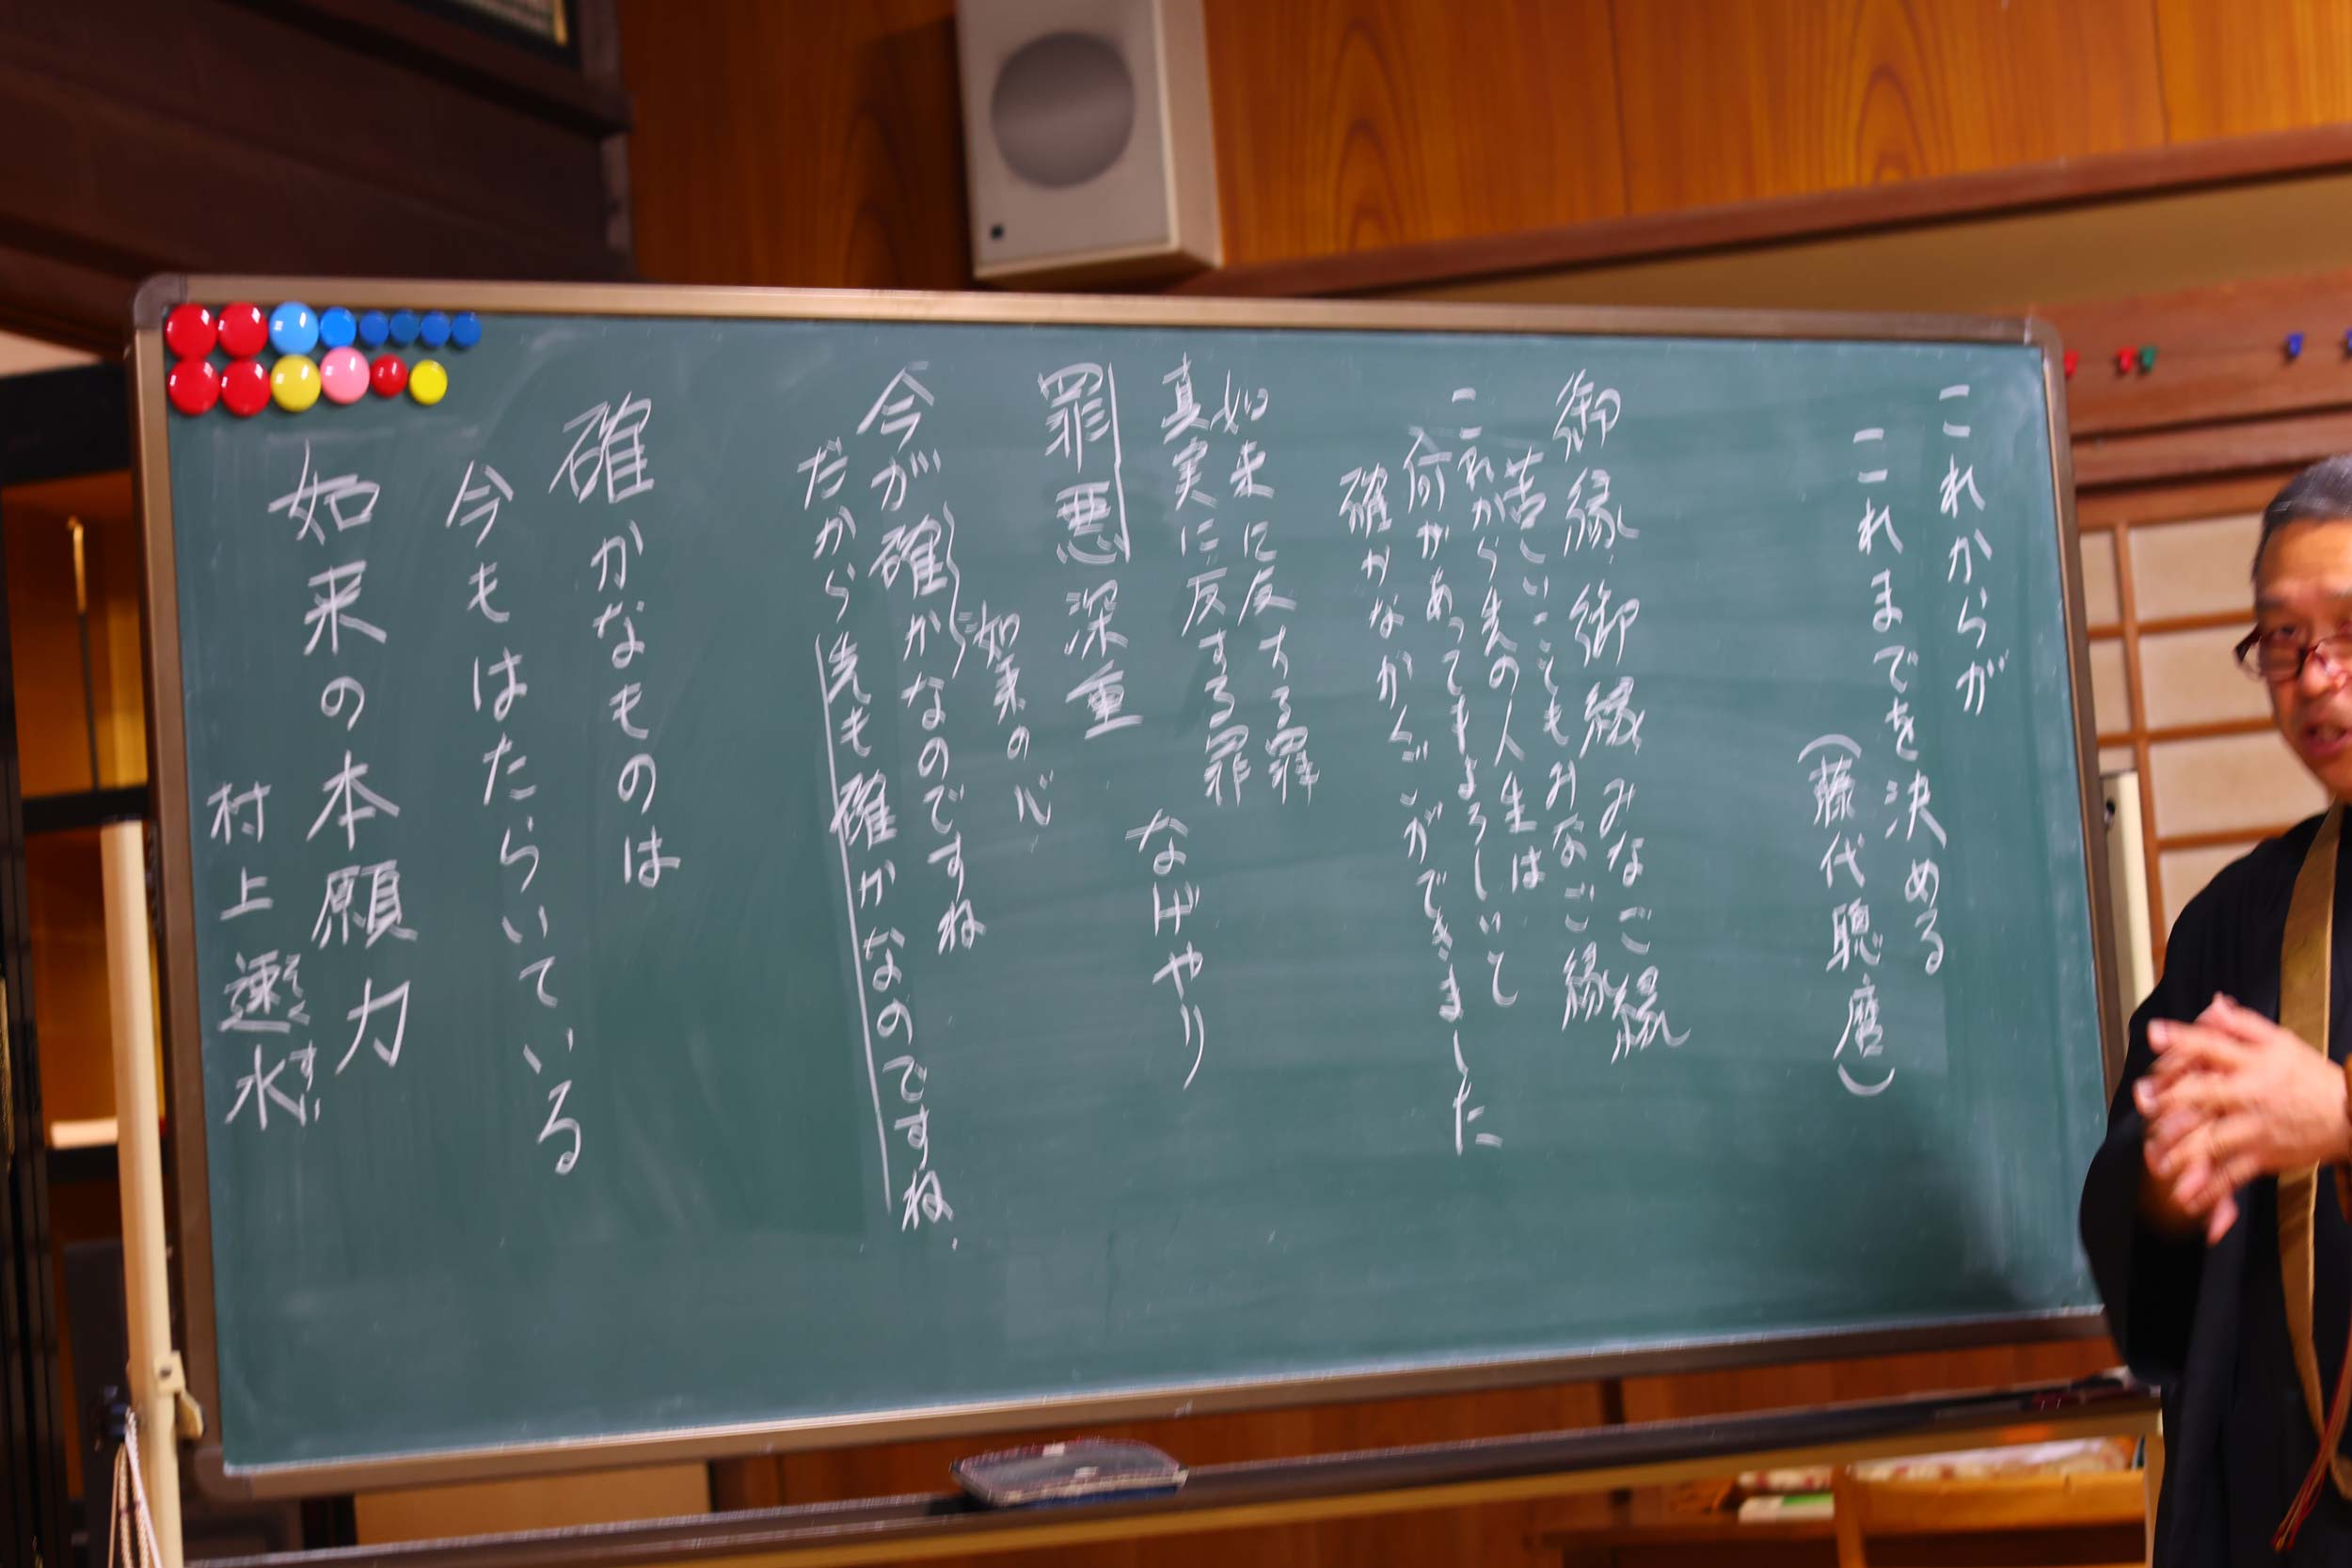 これからが
これまでを決める
(藤代聰麿)
御縁御縁みなご縁
苦しいこともみなご縁
これから先の人生は
何があってもよろしいと
確かなかくごができました
如来に反する罪
真実に反する罪
罪悪深重
なげやり
如来の心
今が確かなのですね
だから先も確かなのですね.
確かなものは
今もはたらいている
如来の本願力
村上速水
そく
すい